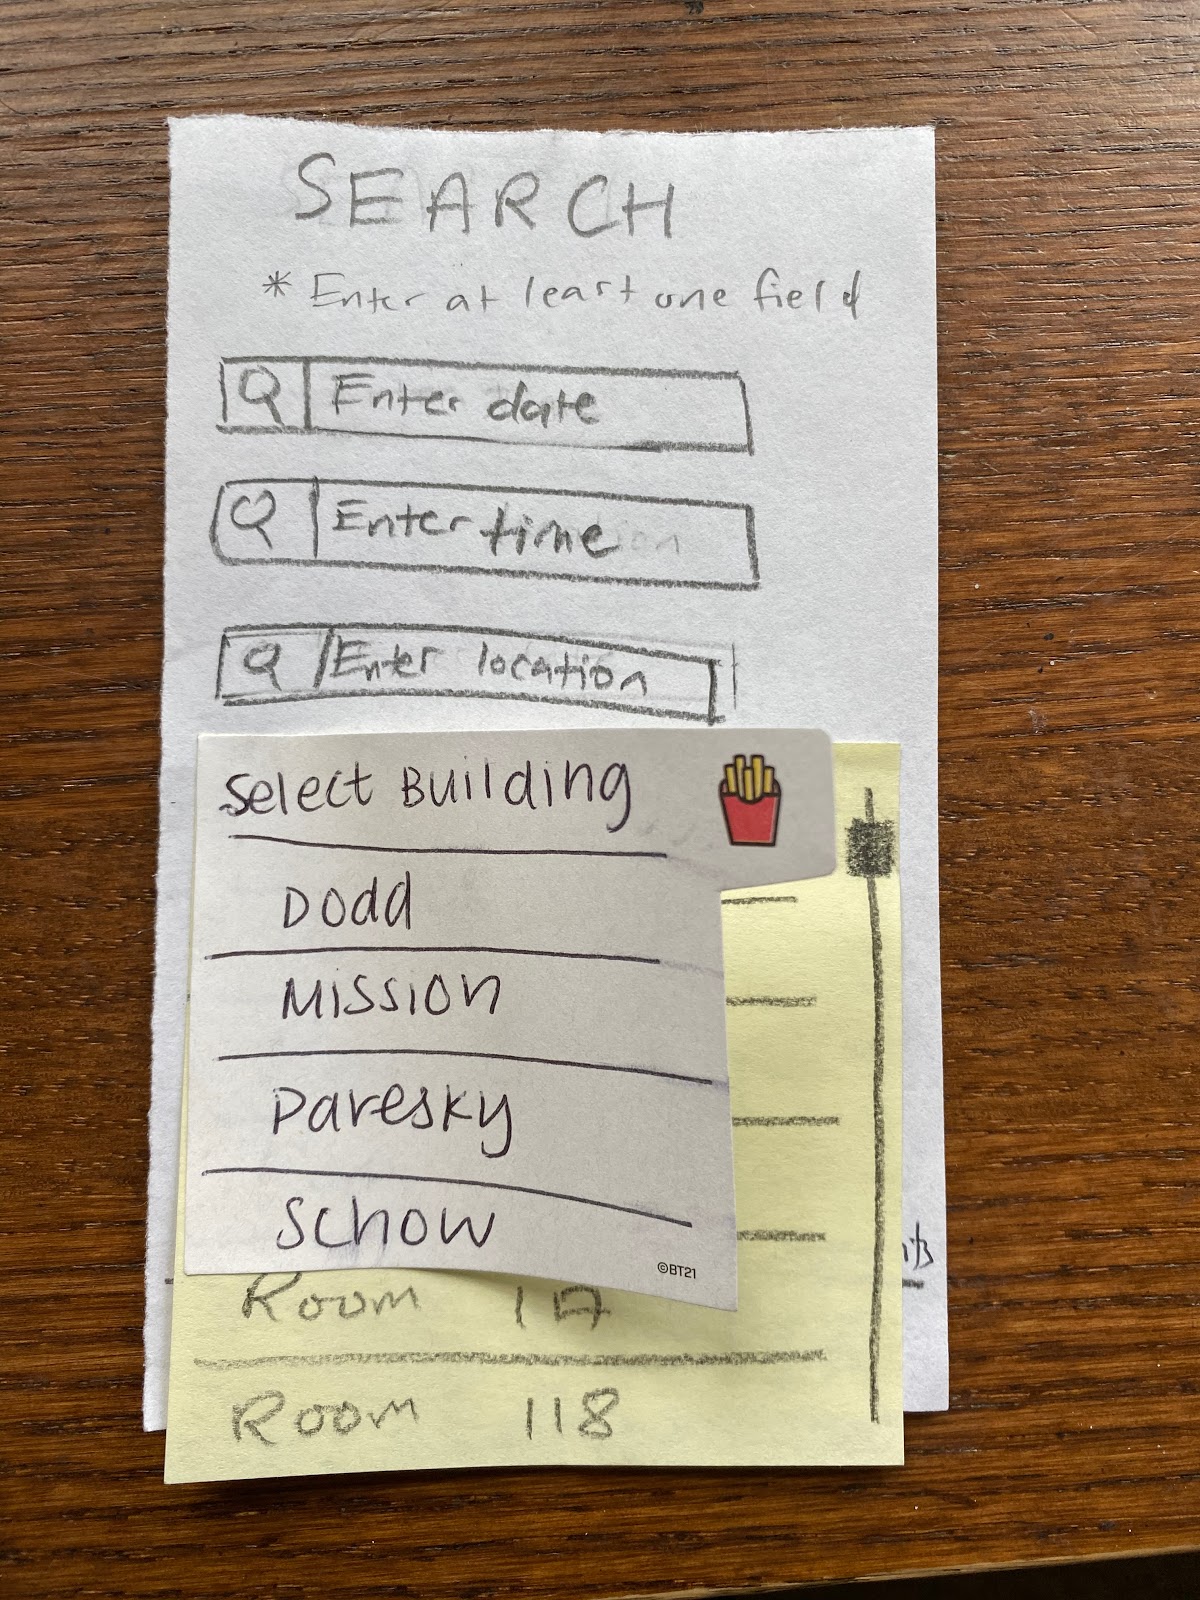 SEARCH
* Enter at least one field
Enter date
Enter time
Enter location
Select Building
Dodd
Mission
Paresky
Schow
©BT21
Room
Room 118